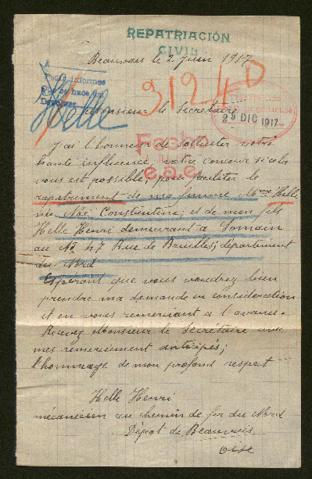 REPATRIACIÓN
CIVIL
Beauvais le 2 Juin 1917
A
Pedir informes
Que se hace en
Helle
9124 D
Monsieur le Secretaire
29 DIC 1917
J'ai l'honneur de solliciter votre
haute influence, votre concour si cela
vous est possible, pour faciliter le
rapatriement de ma femme Mme Helle,
née Noé Constentine; et de mon fils
Helle Henri demeurant a Somain
au No 47 Rue de Bruelles; departement
du Nord
Esperant que vous voudrez bien
prendre ma demande en consideration
et en vous remerciant a l'avance.
Recevez Monsieur le Secretaire avec
mes remerciement anticipés;
l'hommage de mon profond respect
Helle Henri
mécanicien au chemin de fer du Nord
Dépot de Beauvais
Oise